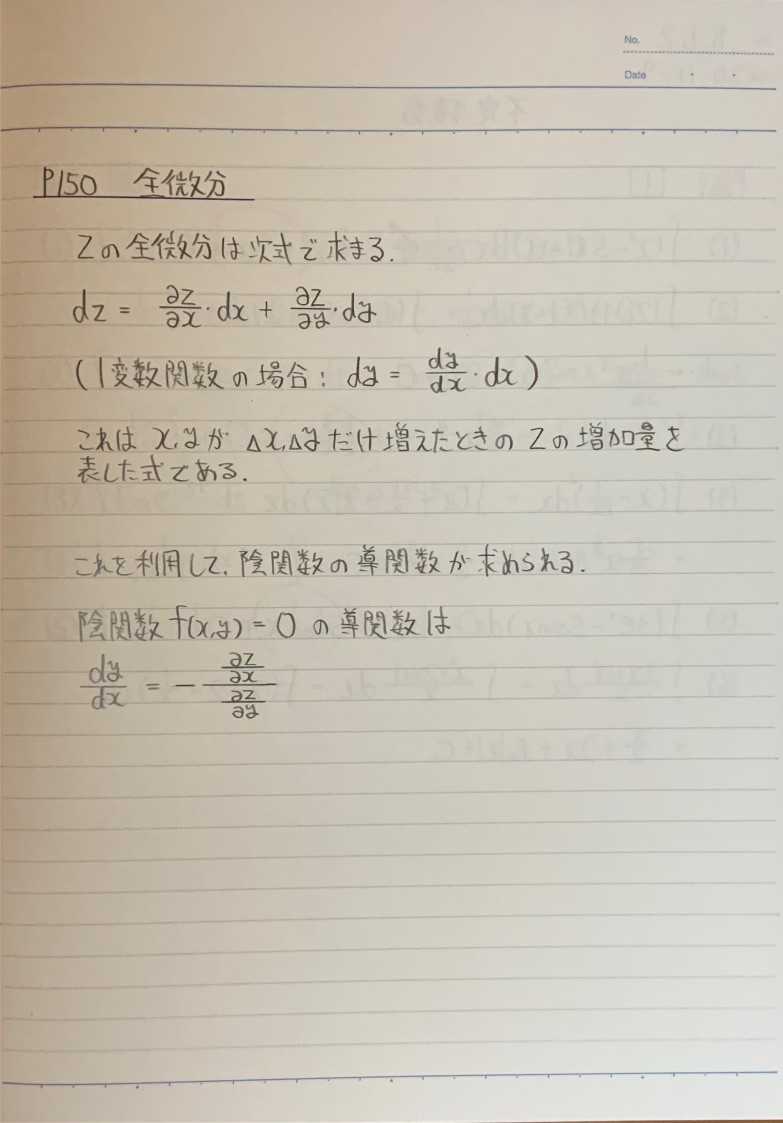 No.
Date
P150 全微分
Zの全微分は次式で求まる.
dz = ∂z/∂x・dx + ∂z/∂y・dy
(1変数関数の場合: dy = dy/dx・dx)
これは x,yが Δx,Δyだけ増えたときのZの増加量を
表した式である.
これを利用して,陰関数の導関数が求められる.
陰関数 f(x,y)=0 の導関数は
dy/dx = - (∂z/∂x)/(∂z/∂y)